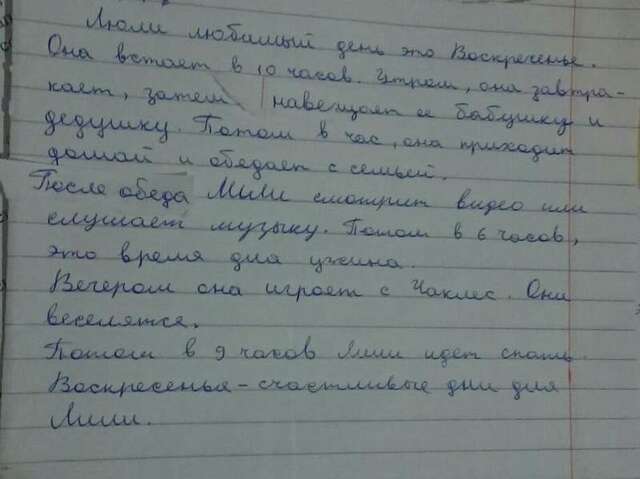 Люли любимый день это Воскресенье.
Она встает в 10 часов. Утром, она завтра-
кает, затем навещает ее бабушку и
дедушку. Потом в час, она приходит
домой и обедает с семьей.
После обеда Мили смотрит видео или
слушает музыку. Потом в 6 часов,
это время для ужина.
Вечером она играет с Чаклес. Они
веселятся.
Потом в 9 часов Мили идет спать.
Воскресенья - счастливые дни для
Мили.